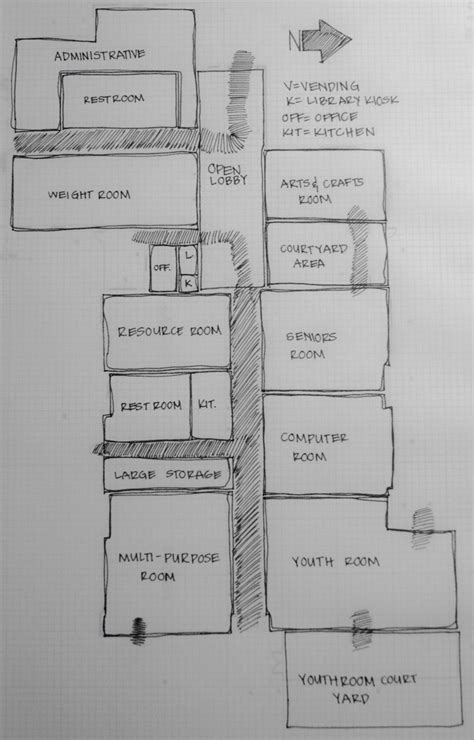 N
ADMINISTRATIVE
RESTROOM
V=VENDING
K=LIBRARY KIOSK
OFF=OFFICE
KIT=KITCHEN
OPEN
LOBBY
WEIGHT ROOM
ARTS & CRAFTS
ROOM
COURTYARD
AREA
OFF.
L
K
RESOURCE ROOM
SENIORS
ROOM
RESTROOM
KIT.
COMPUTER
ROOM
LARGE STORAGE
MULTI-PURPOSE
ROOM
YOUTH ROOM
YOUTHROOM COURT
YARD